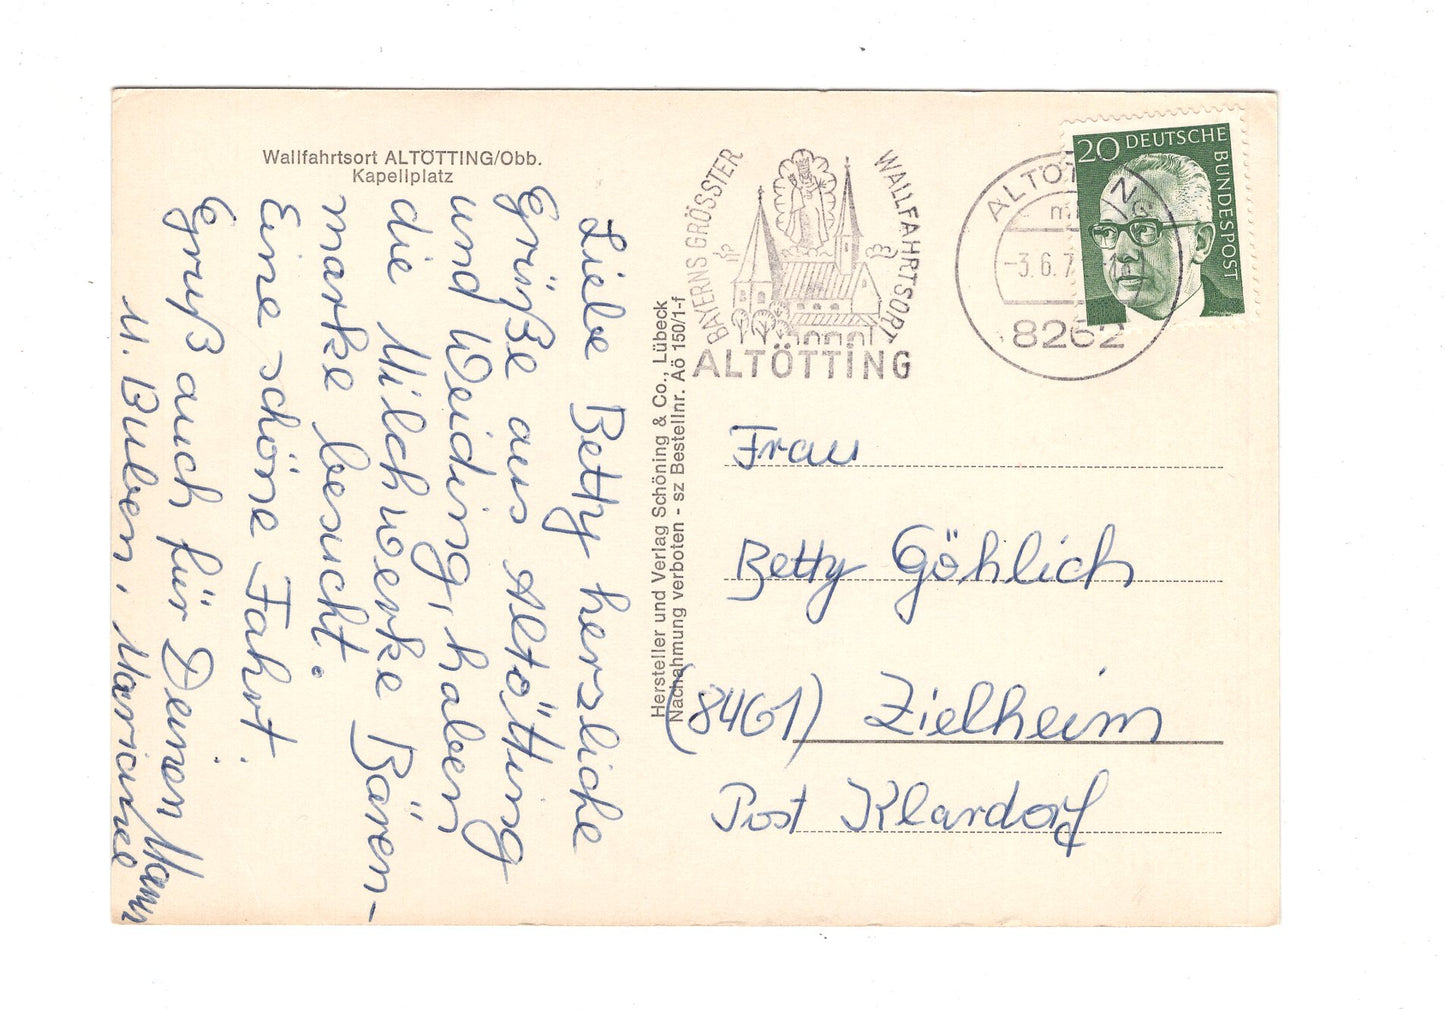 Wallfahrtsort ALTÖTTING/Obb.
Kapellplatz
Liebe Betty herzliche
Grüße aus Altötting
und Weiding, haben
die Milchwerke Bären-
marke besucht.
Eine schöne Fahrt.
Gruß auch für Deinen Mann
u. Buben, Marianne
Hersteller und Verlag Schöning & Co., Lübeck
Nachahmung verboten - sz Bestellnr. Aö 150/1-f
BAYERNS GRÖSSTER
WALLFAHRTSORT
ALTÖTTING
-3.6.7
8262
20 DEUTSCHE
BUNDESPOST
Frau
Betty Göhlich
(8461) Zielheim
Post Klardorf